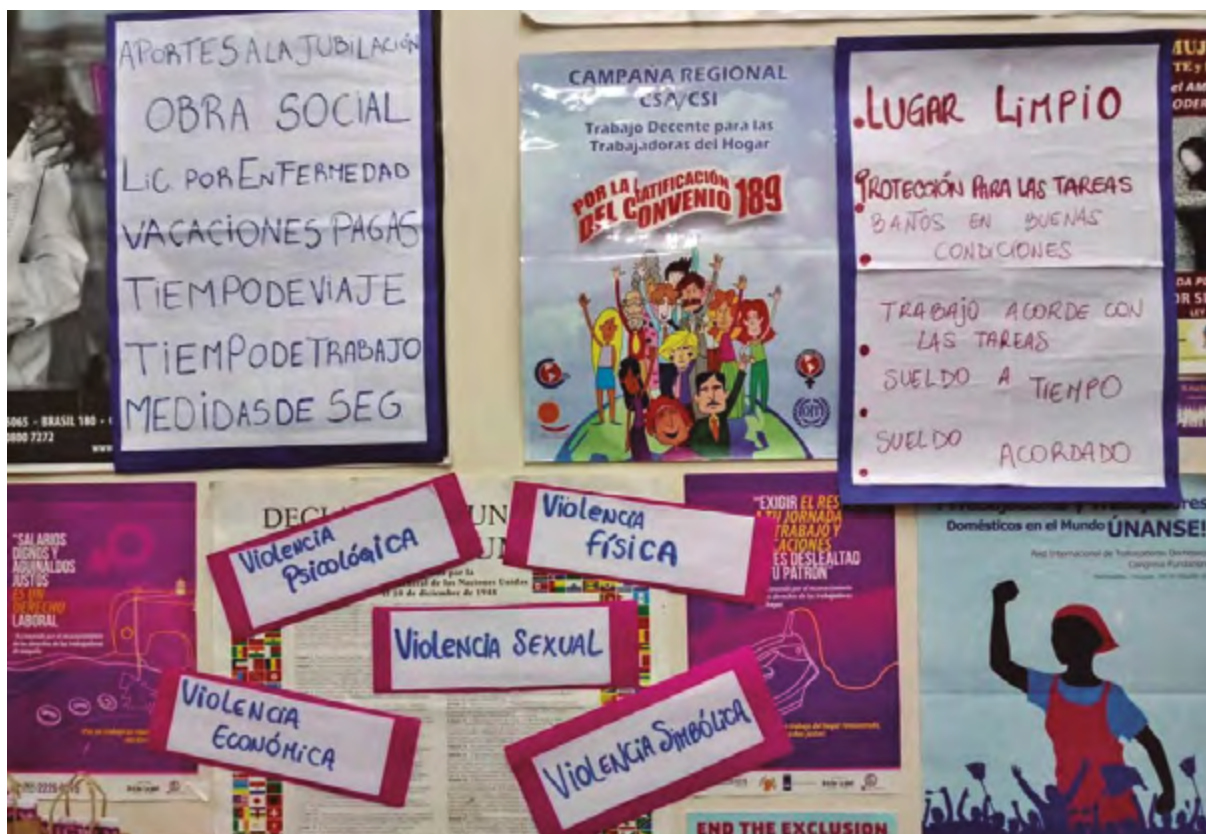 APORTES A LA JUBILACIÓN
OBRA SOCIAL
LIC POR ENFERMEDAD
VACACIONES PAGAS
TIEMPO DE VIAJE
TIEMPO DE TRABAJO
MEDIDAS DE SEG
5065 - BRASIL 180 -
0800 7272
www
CAMPAÑA REGIONAL
CSA/CSI
Trabajo Decente para las
Trabajadoras del Hogar
POR LA RATIFICACIÓN
DEL CONVENIO 189
LUGAR LIMPIO
PROTECCIÓN PARA LAS TAREAS
BAÑOS EN BUENAS
CONDICIONES
TRABAJO ACORDE CON
LAS TAREAS
SUELDO A TIEMPO
SUELDO ACORDADO
MUJ
TE y
el AM
ODER
DA PU
OR S
LEY
"SALARIOS
DIGNOS Y
AGUINALDOS
JUSTOS
ES UN
DERECHO
LABORAL
DECL UN
UN
por la
eral de las Naciones Unidas
el 10 de diciembre de 1948
Violencia
Psicológica
Violencia
Física
Violencia Sexual
Violencia
Económica
Violencia Simbólica
"EXIGIR EL RES
A TU JORNADA
TRABAJO Y
CACIONES
ES DESLEALTAD
TU PATRÓN"
Domésticos en el Mundo ÚNANSE!
Red Internacional de
END THE EXCLUSION